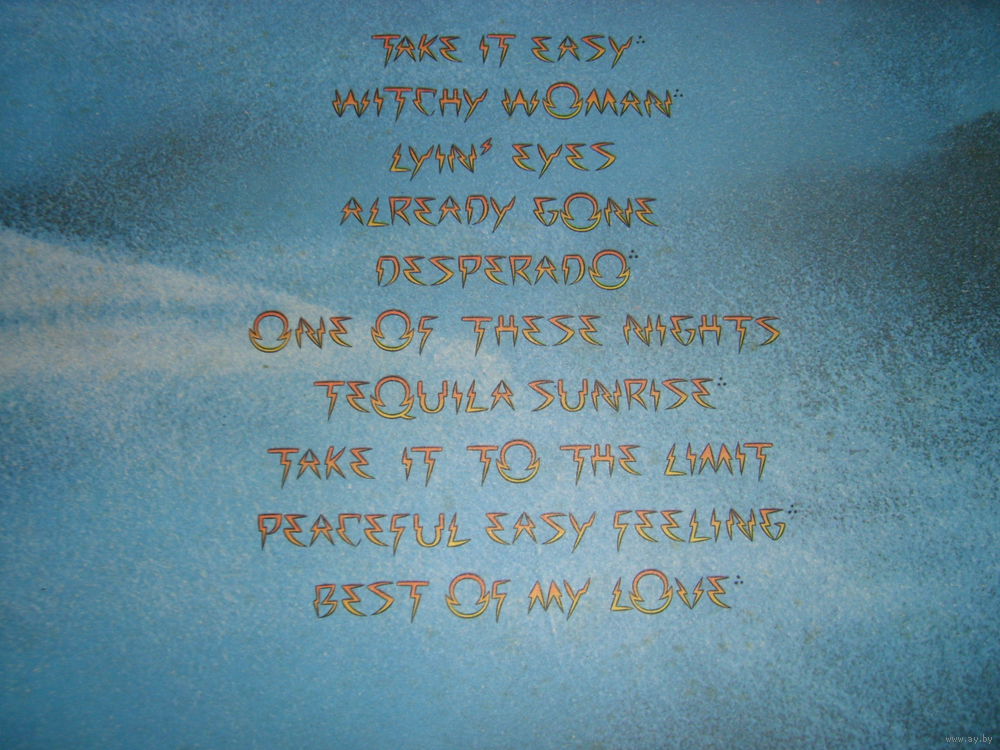 TAKE IT EASY∴
WITCHY WOMAN∴
LYIN' EYES
ALREADY GONE
DESPERADO∴
ONE OF THESE NIGHTS
TEQUILA SUNRISE∴
TAKE IT TO THE LIMIT
PEACEFUL EASY FEELING∴
BEST OF MY LOVE∴
www.ay.by